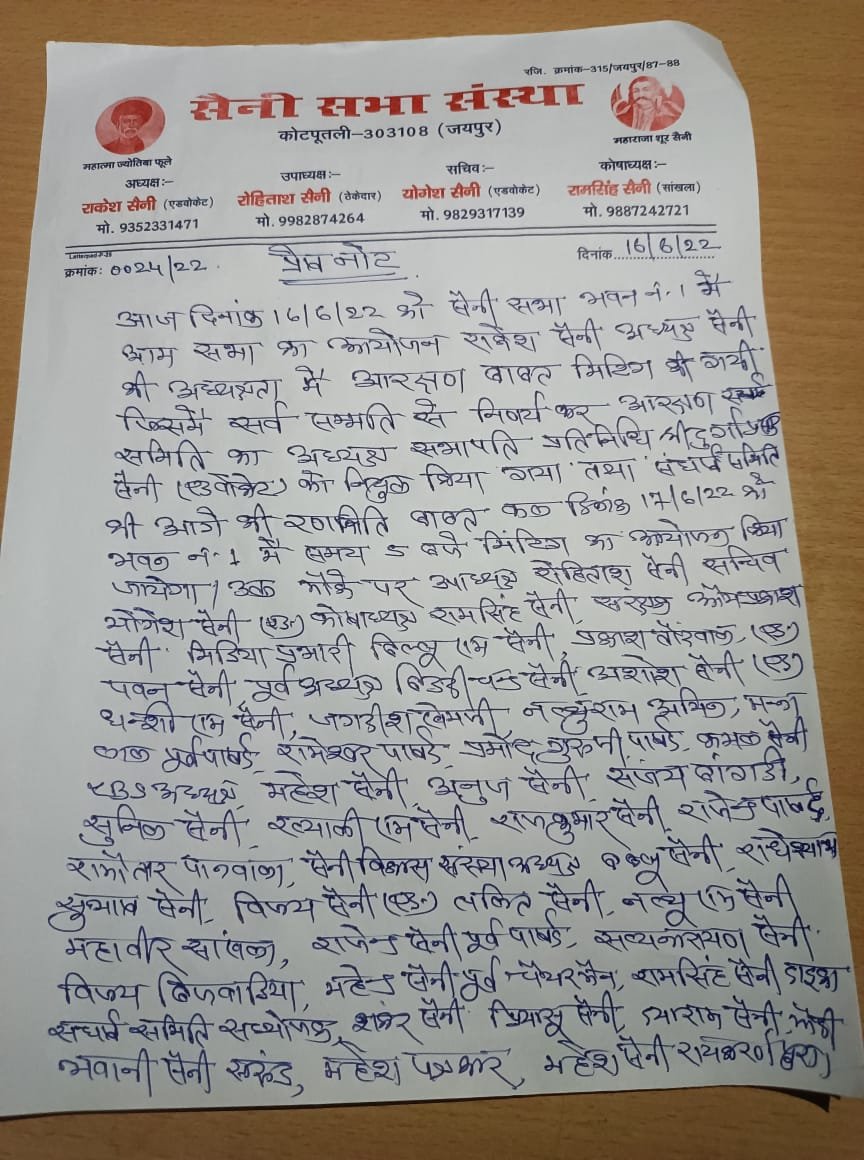 रजि. क्रमांक-315/जयपुर/87-88
सैनी सभा संस्था
कोटपूतली-303108 (जयपुर)
महात्मा ज्योतिबा फूले
महाराजा शूर सैनी
अध्यक्ष:-
राकेश सैनी (एडवोकेट)
मो. 9352331471
उपाध्यक्ष:-
रोहिताश सैनी (ठेकेदार)
मो. 9982874264
सचिव:-
योगेश सैनी (एडवोकेट)
मो. 9829317139
कोषाध्यक्ष:-
रामसिंह सैनी (सांखला)
मो. 9887242721
क्रमांक: 0024/22
प्रेस नोट
दिनांक 16/6/22
आज दिनांक 16/6/22 को सैनी सभा भवन नं. 1 में
आम सभा का आयोजन राकेश सैनी अध्यक्ष सैनी
की अध्यक्षता में आरक्षण बाबत मिटिंग की गयी
जिसमें सर्व सम्मति से निर्णय कर आरक्षण
समिति का अध्यक्ष सभापति प्रतिनिधि श्री दुर्गा
सैनी (एडवोकेट) को नियुक्त किया गया तथा संघर्ष समिति
की आगे की रणनिति बाबत कल दिनांक 17/6/22 को
भवन नं. 1 में समय 5 बजे मिटिंग का आयोजन किया
जायेगा। उक्त मौके पर उपाध्यक्ष रोहिताश सैनी सचिव
योगेश सैनी (एड.) कोषाध्यक्ष रामसिंह सैनी, संरक्षक ओमप्रकाश
सैनी मिडिया प्रभारी बिल्लू राम सैनी, प्रकाश (एड.)
पवन सैनी, पूर्व अध्यक्ष चन्द सैनी, अशोक सैनी (एड.)
राम सैनी, जगदीश नत्थुराम
लाल पूर्व पार्षद, रामेश्वर पार्षद, प्रमोद गुरुजी पार्षद, कमल सैनी
अध्यक्ष, महेश सैनी, अनुज सैनी, संजय बांगडी,
सुनिल सैनी, ख्याली राम सैनी, राजकुमार सैनी, राजेन्द्र पार्षद,
रामौतार, सैनी विकास संस्था अध्यक्ष बबलू सैनी, राधेश्याम
सुभाष सैनी, विजय सैनी (एड.) ललित सैनी, नत्थू राम सैनी
महावीर सांखला, राजेन्द्र सैनी पूर्व पार्षद, सत्यनारायण सैनी
विजय, महेन्द्र सैनी पूर्व चैयरमैन, रामसिंह सैनी
संघर्ष समिति सयोजक, शंकर सैनी सैनी, दयाराम सैनी
भवानी सैनी, महेश पत्रकार, महेश सैनी